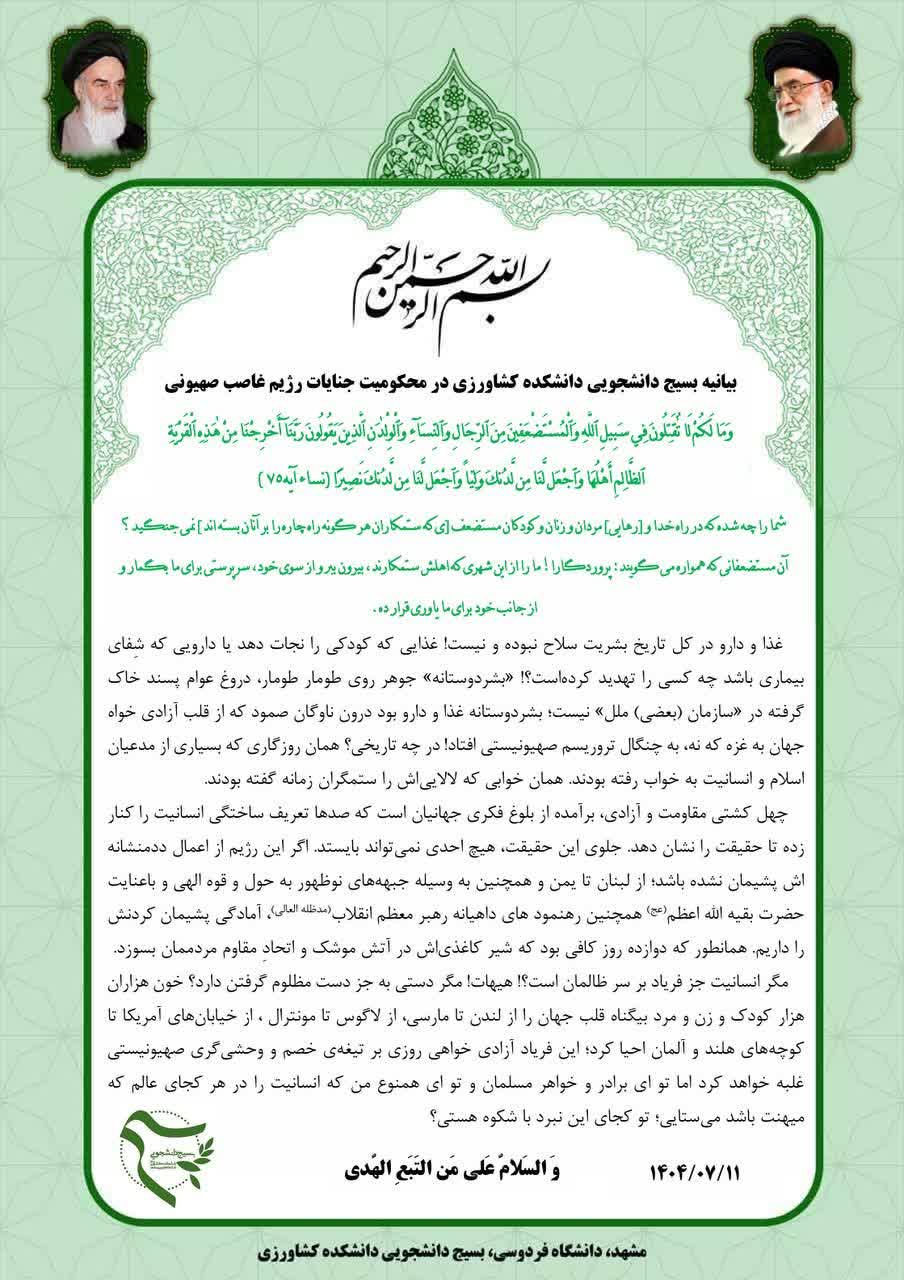 بسم الله الرحمن الرحیم
بیانیه بسیج دانشجویی دانشکده کشاورزی در محکومیت جنایات رژیم غاصب صهیونی
وَمَا لَكُمْ لَا تُقَٰتِلُونَ فِي سَبِيلِ ٱللَّهِ وَٱلْمُسْتَضْعَفِينَ مِنَ ٱلرِّجَالِ وَٱلنِّسَآءِ وَٱلْوِلْدَٰنِ ٱلَّذِينَ يَقُولُونَ رَبَّنَآ أَخْرِجْنَا مِنْ هَٰذِهِ ٱلْقَرْيَةِ
ٱلظَّالِمِ أَهْلُهَا وَٱجْعَل لَّنَا مِن لَّدُنكَ وَلِيًّا وَٱجْعَل لَّنَا مِن لَّدُنكَ نَصِيرًا (نساء آیه ۷۵)
شما را چه شده که در راه خدا و [رهایی] مردان و زنان و کودکان مستضعف [ی که ستمکاران هر گونه راه چاره را بر آنان بسته اند] نمی جنگید ؟
آن مستضعفانی که همواره می گویند : پروردگارا ! ما را از این شهری که اهلش ستمکارند ، بیرون ببر و از سوی خود ، سرپرستی برای ما بگمار و
از جانب خود برای ما یاوری قرار ده .
غذا و دارو در کل تاریخ بشریت سلاح نبوده و نیست! غذایی که کودکی را نجات دهد یا دارویی که شِفای
بیماری باشد چه کسی را تهدید کرده‌است؟! «بشردوستانه» جوهر روی طومار طومار، دروغ عوام پسند خاک
گرفته در «سازمان (بعضی) ملل» نیست؛ بشردوستانه غذا و دارو بود درون ناوگان صمود که از قلب آزادی خواه
جهان به غزه که نه، به چنگال تروریسم صهیونیستی افتاد! در چه تاریخی؟ همان روزگاری که بسیاری از مدعیان
اسلام و انسانیت به خواب رفته بودند. همان خوابی که لالایی‌اش را ستمگران زمانه گفته بودند.
چهل کشتی مقاومت و آزادی، برآمده از بلوغ فکری جهانیان است که صدها تعریف ساختگی انسانیت را کنار
زده تا حقیقت را نشان دهد. جلوی این حقیقت، هیچ احدی نمی‌تواند بایستد. اگر این رژیم از اعمال ددمنشانه
اش پشیمان نشده باشد؛ از لبنان تا یمن و همچنین به وسیله جبهه‌های نوظهور به حول و قوه الهی و باعنایت
حضرت بقیه الله اعظم(عج) همچنین رهنمود های داهیانه رهبر معظم انقلاب(مدظله العالی)، آمادگی پشیمان کردنش
را داریم. همانطور که دوازده روز کافی بود که شیر کاغذی‌اش در آتش موشک و اتحادِ مقاوم مردممان بسوزد.
مگر انسانیت جز فریاد بر سر ظالمان است؟! هیهات! مگر دستی به جز دست مظلوم گرفتن دارد؟ خون هزاران
هزار کودک و زن و مرد بیگناه قلب جهان را از لندن تا مارسی، از لاگوس تا مونترال ، از خیابان‌های آمریکا تا
کوچه‌های هلند و آلمان احیا کرد؛ این فریاد آزادی خواهی روزی بر تیغه‌ی خصم و وحشی‌گری صهیونیستی
غلبه خواهد کرد اما تو ای برادر و خواهر مسلمان و تو ای همنوع من که انسانیت را در هر کجای عالم که
میهنت باشد می‌ستایی؛ تو کجای این نبرد با شکوه هستی؟
۱۴۰۴/۰۷/۱۱ وَ السَلامٌ عَلی مَن التَبَعِ الهٌدی
بسیج دانشجویی
مشهد، دانشگاه فردوسی، بسیج دانشجویی دانشکده کشاورزی